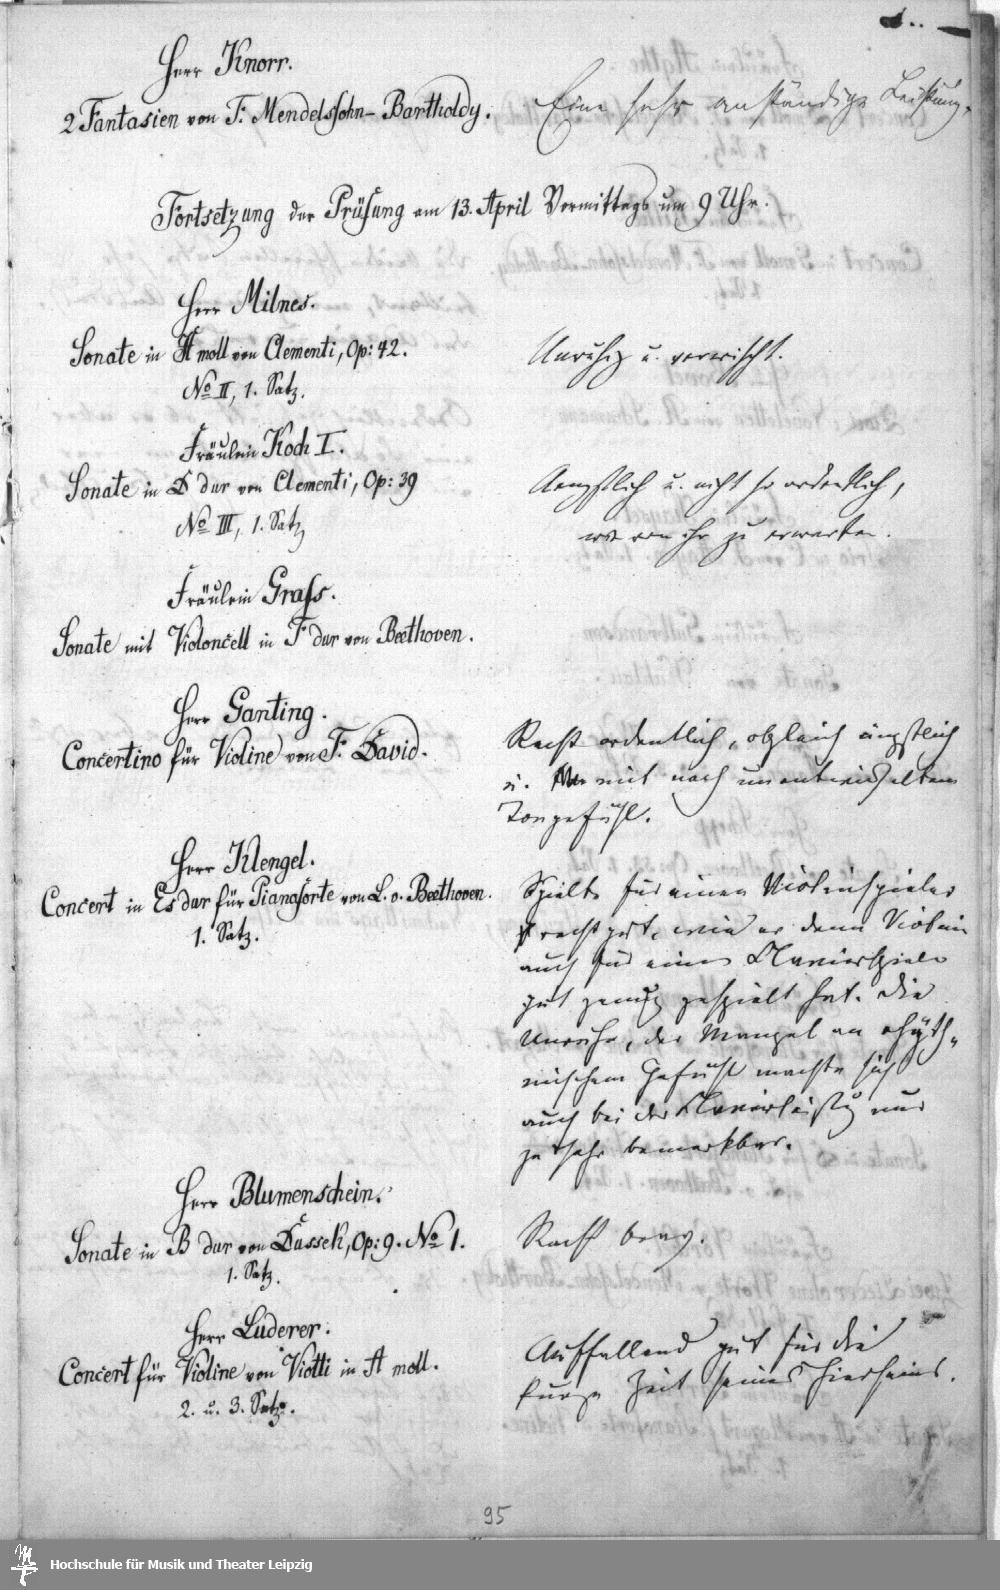 Herr Knorr.
2 Fantasien von F. Mendelssohn-Bartholdy.
Eine sehr anständige Leistung.
Fortsetzung der Prüfung am 13. April Vormittags um 9 Uhr.
Herr Milnes.
Sonate in A moll von Clementi, Op: 42.
No II, 1. Satz.
Unruhig u. verwischt.
Fräulein Koch I.
Sonate in D dur von Clementi, Op: 39
No III, 1. Satz
Aengstlich u. nicht so ordentlich,
wie von ihr zu erwarten.
Fräulein Grass.
Sonate mit Violoncell in F dur von Beethoven.
Herr Ganting.
Concertino für Violine von F. David.
Recht ordentlich, obgleich ängstlich
u. mit noch unentwickeltem
Tongefühl.
Herr Klengel.
Concert in Es dur für Pianoforte von L. v. Beethoven.
1. Satz.
Spielte für einen Violinspieler
recht gut, wie er denn Violin
auch für einen Clavierspieler
gut genug gespielt hat. Die
Unruhe, der Mangel an rhyth-
mischem Gefühl machte sich
auch bei der Clavierleistg nur
zu sehr bemerkbar.
Herr Blumenschein.
Sonate in B dur von Dussek, Op: 9. No 1.
1. Satz.
Recht brav.
Herr Luderer.
Concert für Violine von Viotti in A moll.
2. u. 3. Satz.
Auffallend gut für die
kurze Zeit seines Hierseins.
95
Hochschule für Musik und Theater Leipzig